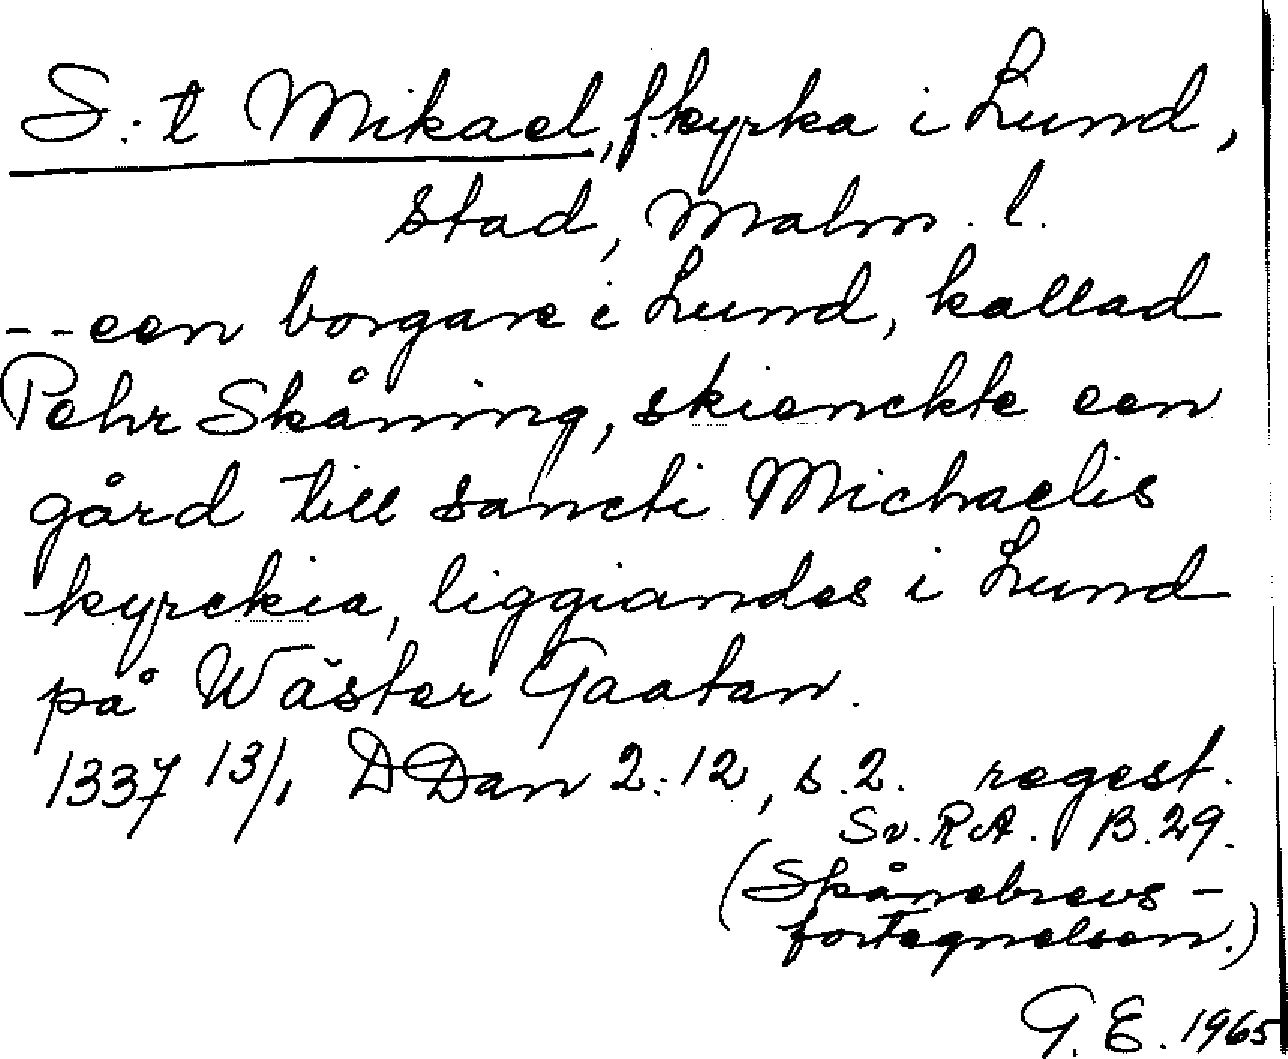 S:t Mikael, f. kyrka i Lund,
stad, Malm. l.
-- een borgare i Lund, kallad
Pehr Skåning, skienckte een
gård till sancti Michaelis
kyrckia, liggiandes i Lund
på Wäster Gaatan.
1337 13/1 DDan 2:12, s. 2. regest.
Sv. RA. B.29.
(Skånebrevs-
fortegnelsen.)
G. E. 1965